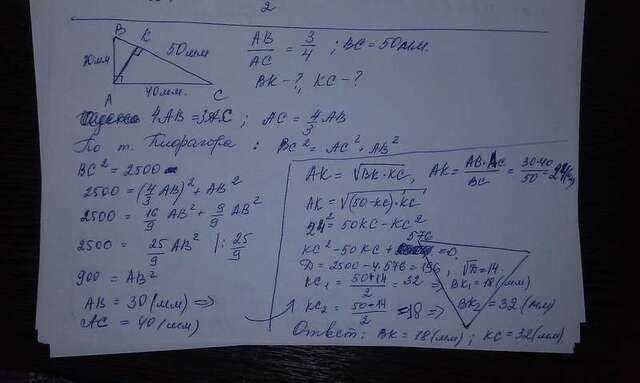 2
B
K
50мм
30мм
A
40мм.
C
AB/AC = 3/4 ; BC = 50мм.
BK - ?, KC - ?
4AB = 3AC; AC = 4/3 AB
По т. Пифагора: BC² = AC² + AB²
BC² = 2500
2500 = (4/3 AB)² + AB²
2500 = 16/9 AB² + 9/9 AB²
2500 = 25/9 AB² |: 25/9
900 = AB²
AB = 30 (мм) =>
AC = 40 (мм)
AK = √BK·KC, AK = AB·AC/BC = 30·40/50 = 24(мм)
AK = √(50-KC)·KC
24² = 50KC - KC²
KC² - 50KC + 576 = 0.
D = 2500 - 4·576 = 196, √D = 14.
KC₁ = 50+14/2 = 32 => BK₁ = 18 (мм)
KC₂ = 50-14/2 = 18 => BK₂ = 32 (мм)
Ответ: BK = 18 (мм); KC = 32 (мм)